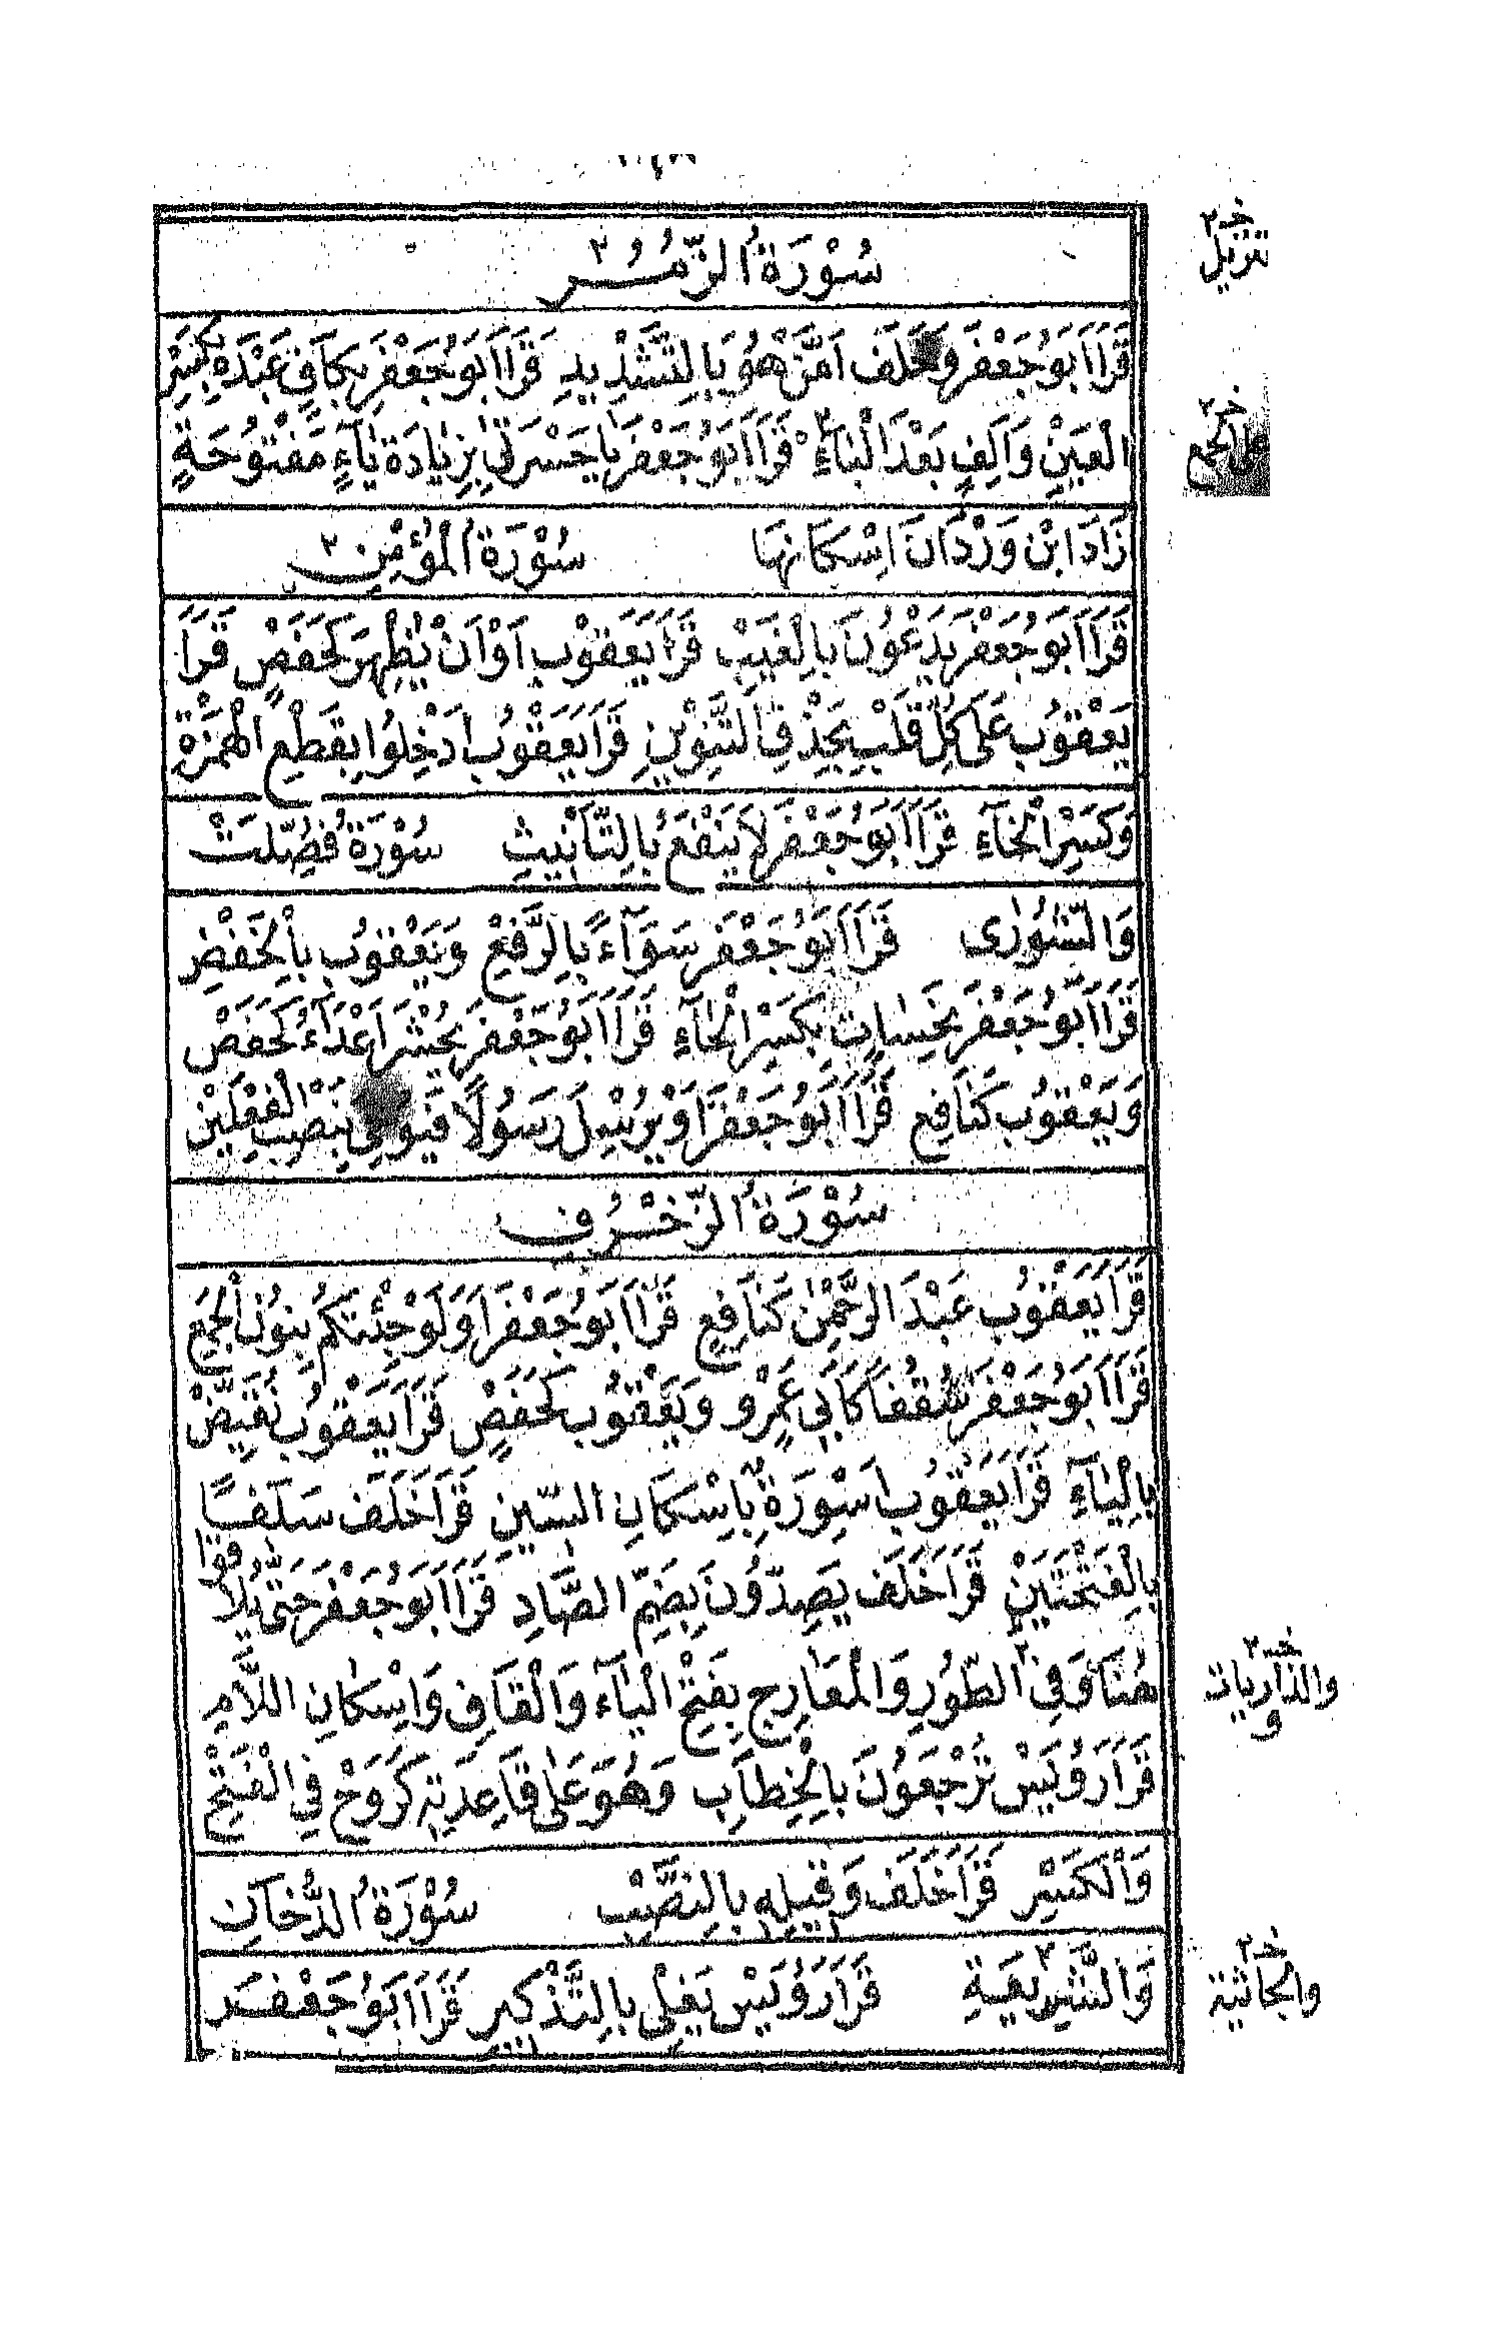 سُوْرَةُ الزُّمَرُ ٢
قَرَأَ أَبُو جَعْفَرٍ وَخَلَفَ اَمَّنْ هُوَ بِالتَّشْدِيدِ قَرَأَ اَبُو جَعْفَرَ بِكَافٍ عَبْدَهُ بِكَسْرِ
الْعَيْنِ وَاَلِفٍ بَعْدَ الْبَاءِ ٢ قَرَأَ اَبُو جَعْفَرَ يَا حَسْرَتَايَ بِزِيَادَةِ يَاءٍ مَفْتُوحَةٍ
زَادَ ابْن وَرْدَانَ اِسْكَانَهَا سُوْرَةُ الْمُؤْمِنِ ٢
قَرَأَ اَبُو جَعْفَرَ يَدْعُونَ بِالْغَيْبِ قَرَأَ يَعَقُوْبِ اَوْ اَنْ يُظْهِرَ كَحَفْصٍ قَرَأَ
يَعْقُوُبِ عَلَى كُلِّ قَلْبِ بِحَذْفِ التَّنْوِيْنِ قَرَأَ يَعَقْوُبُ ادْخِلُوا بِقَطْعِ الْهَمْزَةِ
وَكَسْرِ الْخَاءِ قَرَأَ اَبُو جَعْفَرَ لاَ يَنْفَعُ بِالتَّأنِيثِ سُوْرَةُ فُصِّلَتْ
وَالشُّورٰى قَرَأَ اَبُو جَعْفَرَ سَوَآءً بِالرَّفْعِ وَيَعْقُوُبُ بِالْخَفْضِ
قَرَأَ اَبُو جَعْفَرَ نَحِسَاتٍ بِكَسْرِ الْحَآءِ قَرَأَ اَبُو جَعْفَرَ يُحْشَرُ اَعْدَآءُ كَحَفْص
وَيَعْقُوُب كَنَافِعٍ قَرَأَ اَبُو جَعْفَرَ اَوْ يُرْسِلَ رَسُولًا فَيُوحِيَ بِنَصْبِ الْفِعْلَيْنِ
سُوْرَةُ الزُّخْرُفِ
قَرَأَ يَعَقْوُب عَبْدَ الرَّحْمٰنِ كَنَافِعٍ قَرَأَ اَبُو جَعْفَرَ اَوَلَوْ جِئْنَاكُمْ بِنُونِ الْجَمْعِ
قَرَأَ اَبُو جَعْفَرَ سُقُفًا كَاَبِي عَمْرٍو وَيَعْقُوُب كَحَفَصٍ قَرَأَ يَعْقُوُبُ نُقَيِّضْ
بِالْيَآءِ قَرَأَ يَعَقُوُب اَسْوِرَةٌ بِاِسْكَانِ السّيِنِ قَرَأَ خَلَفَ سَلَفًا
بِالْفَتْحَتَيْنِ قَرَأَ خَلَف يَصِدُّونَ بِضَمِّ الصَّادِ قَرَأَ اَبُو جَعْفَرَ حَتّٰى يُلاَقُوا
هُنَا وَفِي الطُّورِ وَالْمَعَارِجِ بِفَتْحِ الْيَاءِ وَالْقَافِ وَاِسْكَانِ اللاَّمِ
قَرَأَ رُوَيْسَ تَرْجَعُونَ بِالْخِطَابِ وَهُوَ عَلٰى قَاعِدَتِهِ كَرَوْحٍ فِي الْفَتْحِ
وَالْكَسْرِ قَرَأَ خَلَف وَقِيلِهِ بِالنَّصْبِ سُوْرَةُ الدُّخَانِ
وَالشَّرِيعَةِ ٢ قَرَأَ رُوَيْس يَغْلِي بِالتَّذْكِيرِ قَرَأَ اَبُو جَعْفَر
خـ ٢
تنزيل
خـ ٢
على الجمع
خـ ٢
والذاريات
و
خـ ٢
والجاثية